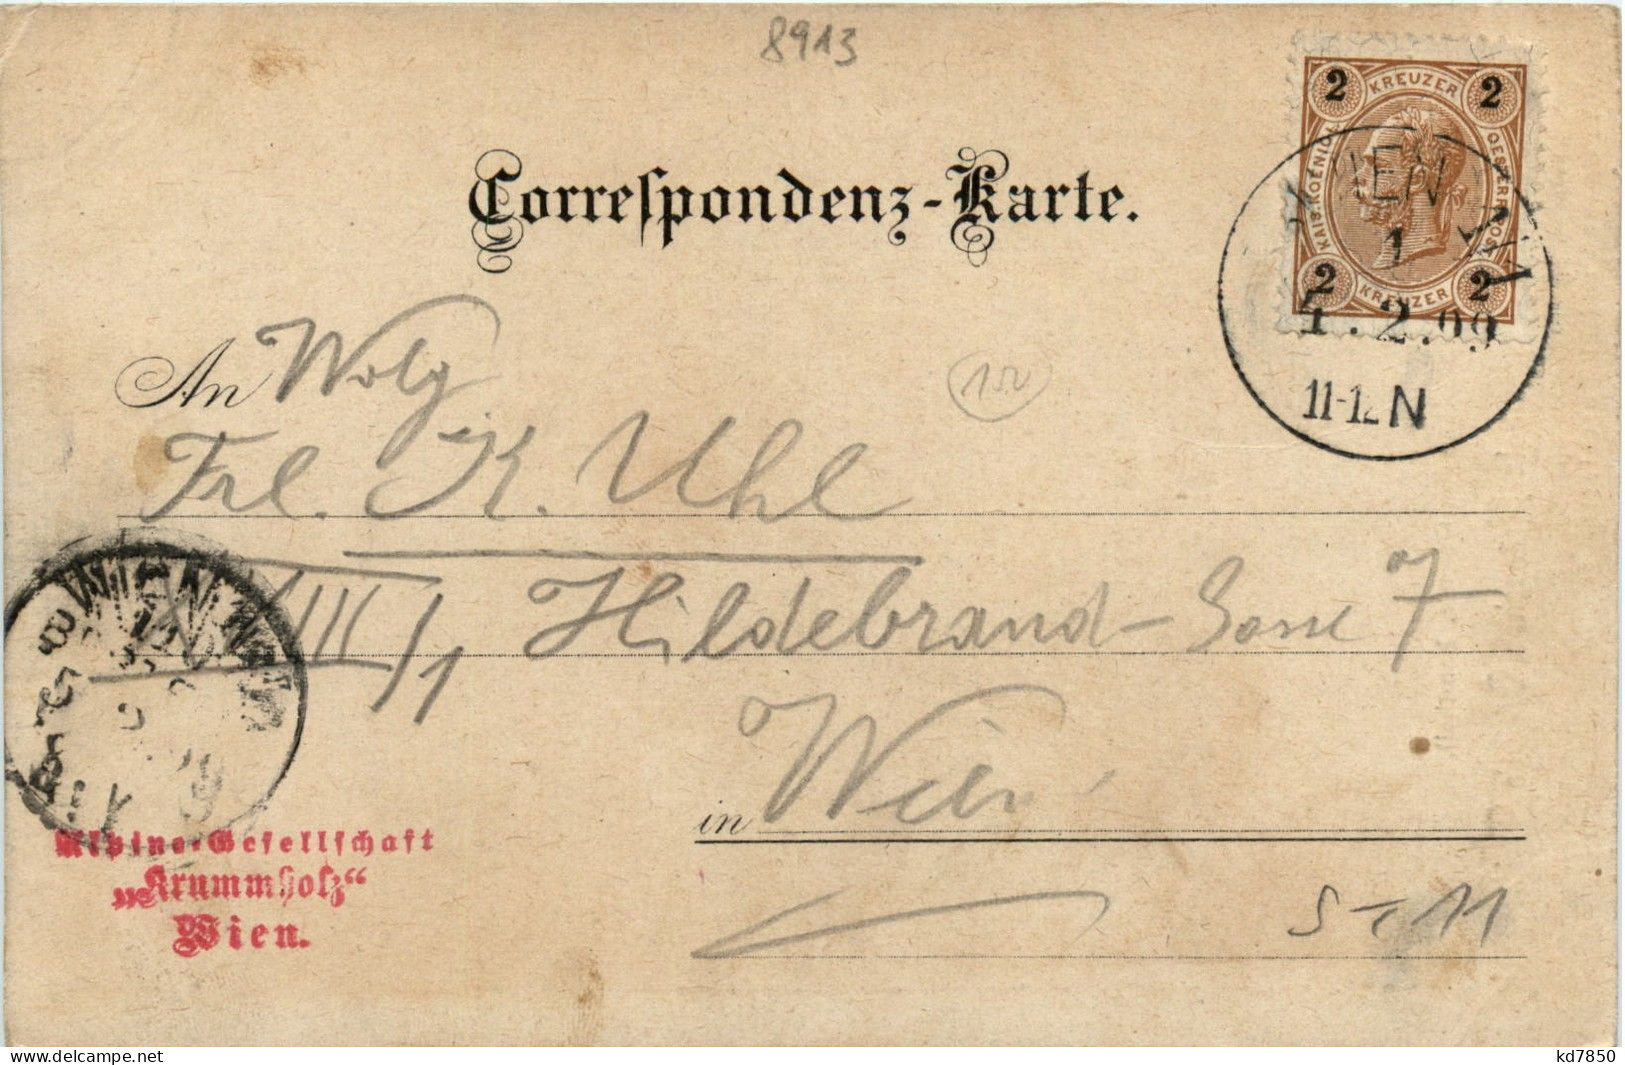 8913
Correspondenz-Karte.
2 KREUZER 2
KAIS. KOENIGL. OESTERR. POST
2 KREUZER 2
WIEN
1
4.2.99
11-12 N
An Wolg
Frl. K. Uhl
152
XVIII/1 Hildebrand-Gasse 7
WIEN
in Wien
Alpine-Gesellschaft
„Krummholz“
Wien.
S-11
kd7850